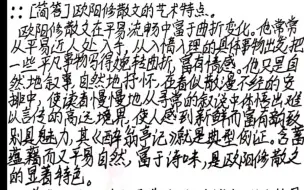 ∷[简答]欧阳修散文的艺术特点。
欧阳修散文在平易流畅中富于曲折变化。他常常
从平易近人处入手，从入情入理的具体事物出发，把
一些平凡事物写得婉转曲折，富有情感。他只是自
然地叙事，自然地抒怀，在看似散漫不经的安
排中，使读者慢慢地从寻常的叙说中体悟出难
以言传的高远境界，使人感到新鲜而富有韵致，
别具魅力，其《醉翁亭记》就是典型例证。含蓄
蕴藉而又平易自然，富于诗味，是欧阳修散文
的显著特色。